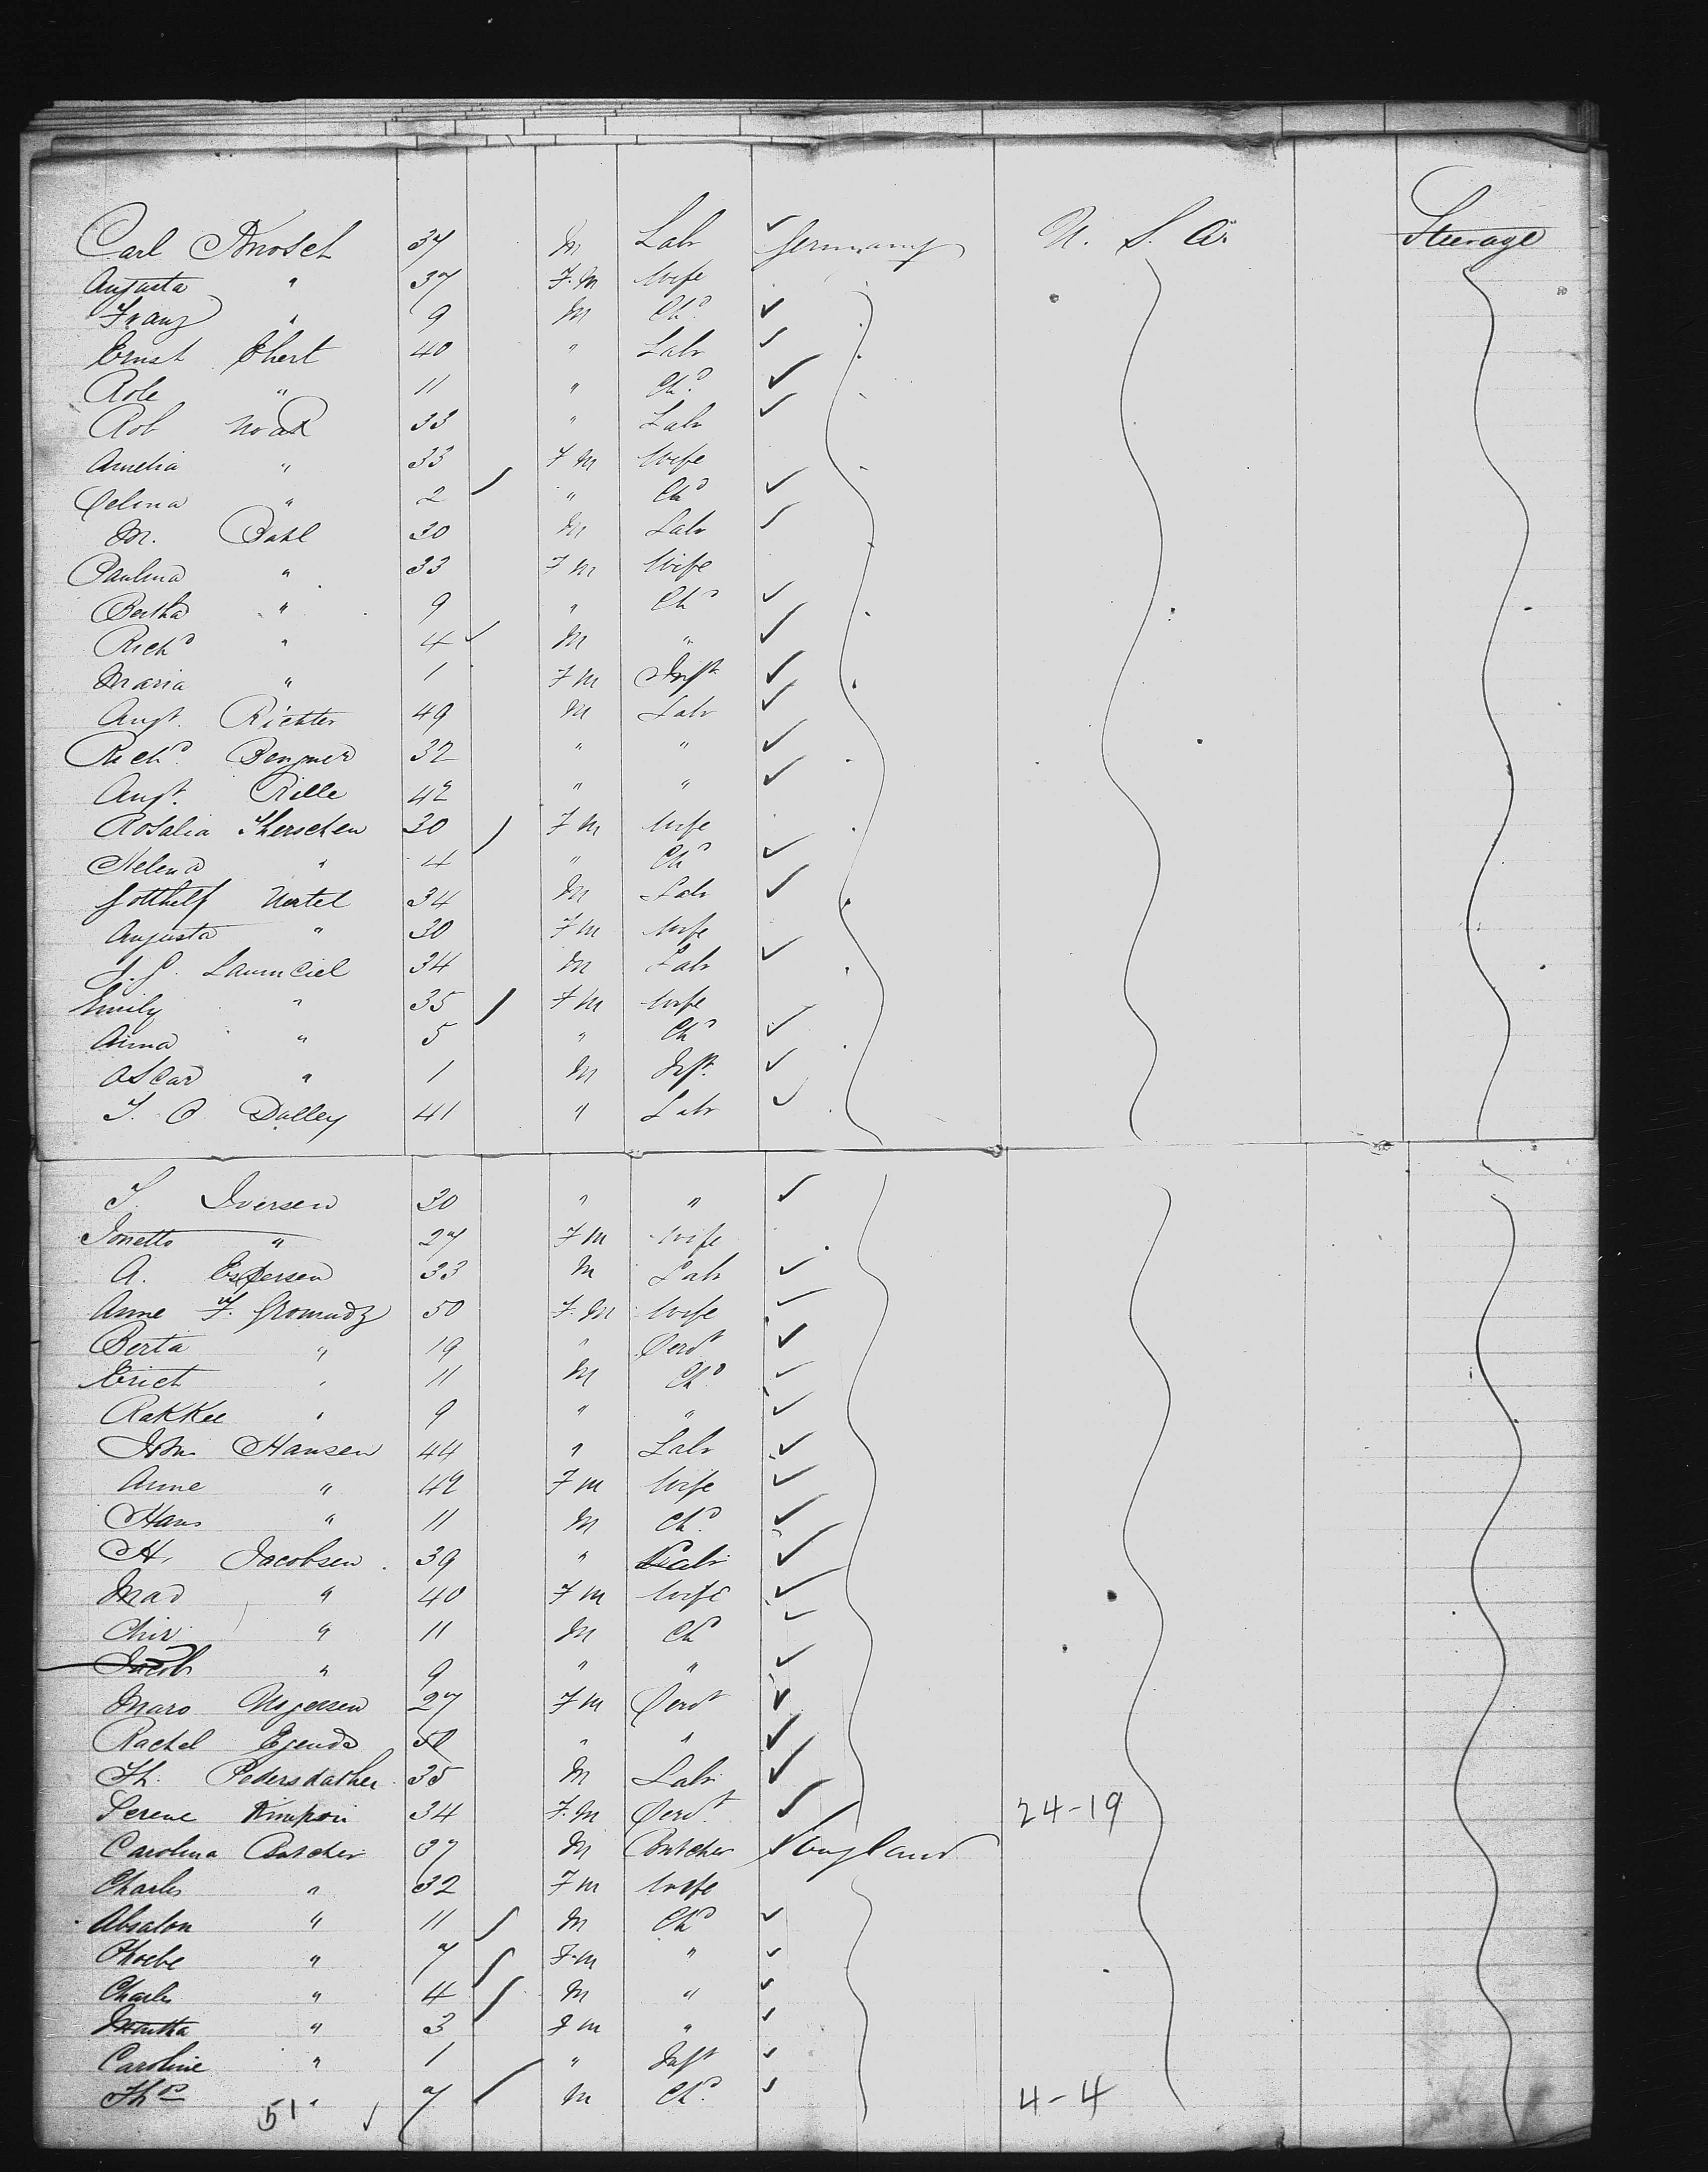 Carl Knosch 37 M Labr Germany U. S. A. Steerage
Augusta " 37 F.M Wife
Franz " 9 M Chd
Ernst Ehert 40 " Labr
Role " 11 " Chd
Rob Noak 33 " Labr
Amelia " 33 F M Wife
Selma " 2 " Chd
M. Pahl 30 M Labr
Paulina " 33 F M Wife
Bertha " 9 " Chd
Richd " 4 M "
Maria " 1 F M Inft
Augt. Richter 49 M Labr
Richd. 32 " "
Augt. Rille 42 " "
Rosalia Therschen 30 F M Wife
Helena " 4 " Chd
Gotthelf Hertel 34 M Labr
Augusta " 30 F M Wife
34 M Labr
Emily " 35 F M Wife
Anna " 5 " Chd
Oscar " 1 M Inft.
Dalley 41 " Labr
Iversen 30 " "
Jonetta " 27 F M Wife
A. Espersen 33 M Labr
Anne F. 50 F.M Wife
Berta " 19 " Servt
Erich " 11 M Chd
Rakkel " 9 " "
Hansen 44 " Labr
Anne " 42 F M Wife
Hans " 11 M Chd.
H. Jacobsen 39 " Labr
Mad " 40 F M Wife
Chir " 11 M Chd
Jacob " 9 " "
27 F M Servt
Rachel " "
Th. Pedersdather 35 M Labr
Serene 34 F.M Servt 24-19
Carolina Butcher 37 M Butcher England
Charles " 32 F M Wife
Absalon " 11 M Chd
Phoebe " 7 F.M "
Charles " 4 M "
" 3 F M "
Caroline " 1 " Inft
Thos " 7 M Chd. 4-4
51